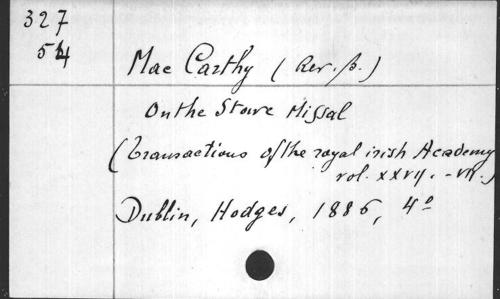 327
54
Mac Carthy (Rev. B.)
On the Stowe Missal
(Transactions of the royal irish Academy
vol. XXVII. - VII.)
Dublin, Hodges, 1886, 4º